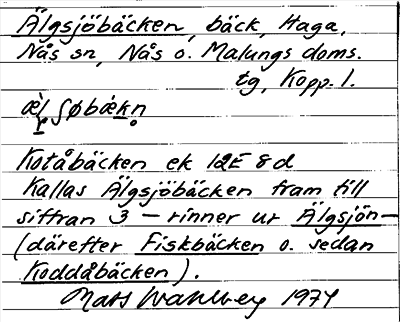 Älgsjöbäcken, bäck, Haga,
Nås sn, Nås o. Malungs doms.
tg, Kopp. l.
Kotåbäcken ek 12E 8d
Kallas Älgsjöbäcken fram till
siffran 3 – rinner ur Älgsjön –
(därefter Fiskbäcken o. sedan
Koddåbäcken).
Mats Wahlberg 1974